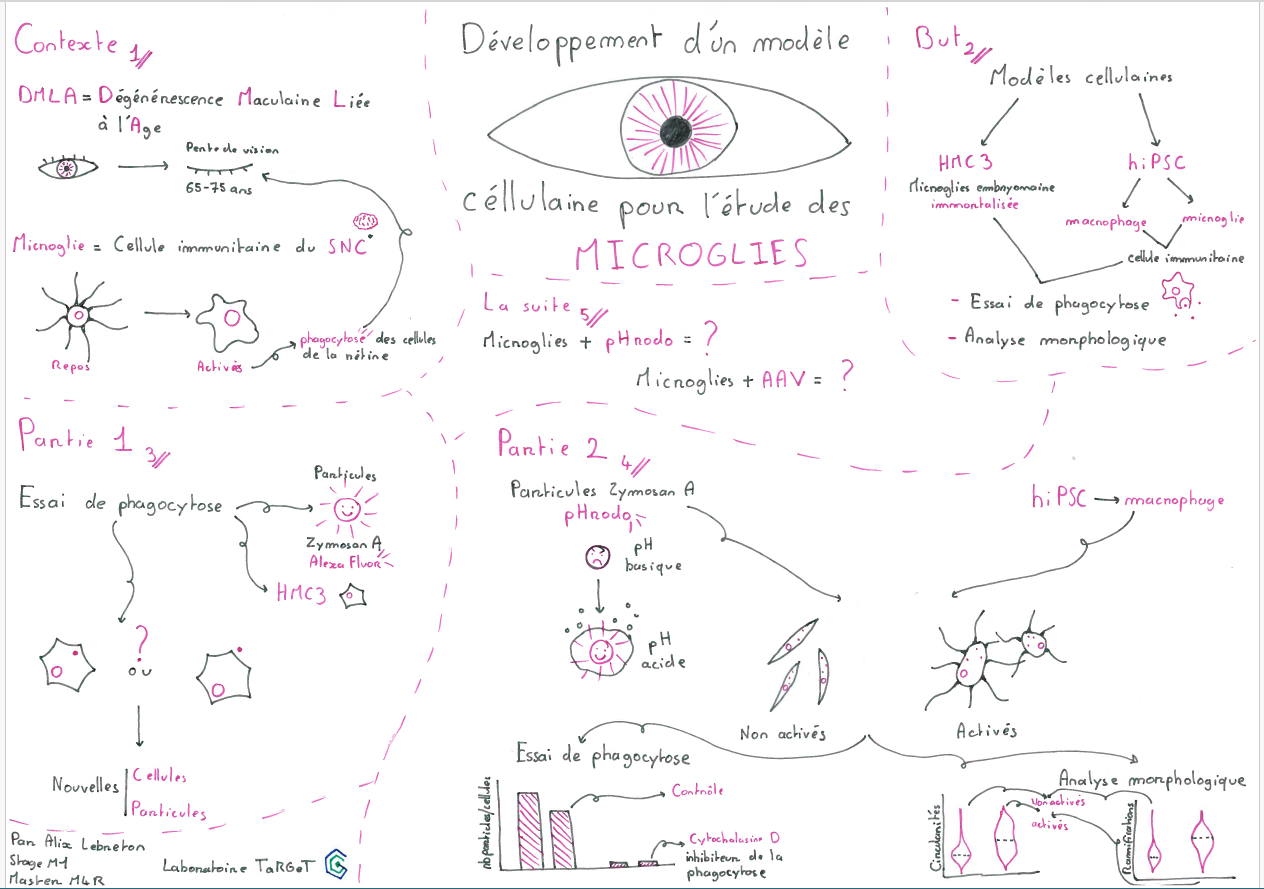 Développement d'un modèle
céllulaire pour l'étude des
MICROGLIES
Contexte 1//
DMLA = Dégénérescence Maculaire Liée
à l'Age
Perte de vision
65-75 ans
Microglie = Cellule immunitaire du SNC
Repos
Activés
phagocytose des cellules
de la rétine
But 2//
Modèles cellulaires
HMC3
Microglies embryonnaire
immortalisée
hiPSC
macrophage
microglie
cellule immunitaire
- Essai de phagocytose
- Analyse morphologique
Partie 1 3//
Essai de phagocytose
Particules
Zymosan A
Alexa Fluor
HMC3
?
ou
Nouvelles
Cellules
Particules
Partie 2 4//
Particules Zymosan A
pHrodo
pH
basique
pH
acide
hiPSC → macrophage
Non activés
Activés
Essai de phagocytose
nb particles/cellules
Contrôle
Cytochalasine D
inhibiteur de la
phagocytose
Analyse morphologique
Circularités
Non activés
activés
Ramifications
La suite 5//
Microglies + pHrodo = ?
Microglies + AAV = ?
Par Alix Lebreton
Stage M1
Master M4R
Laboratoire TaRGeT